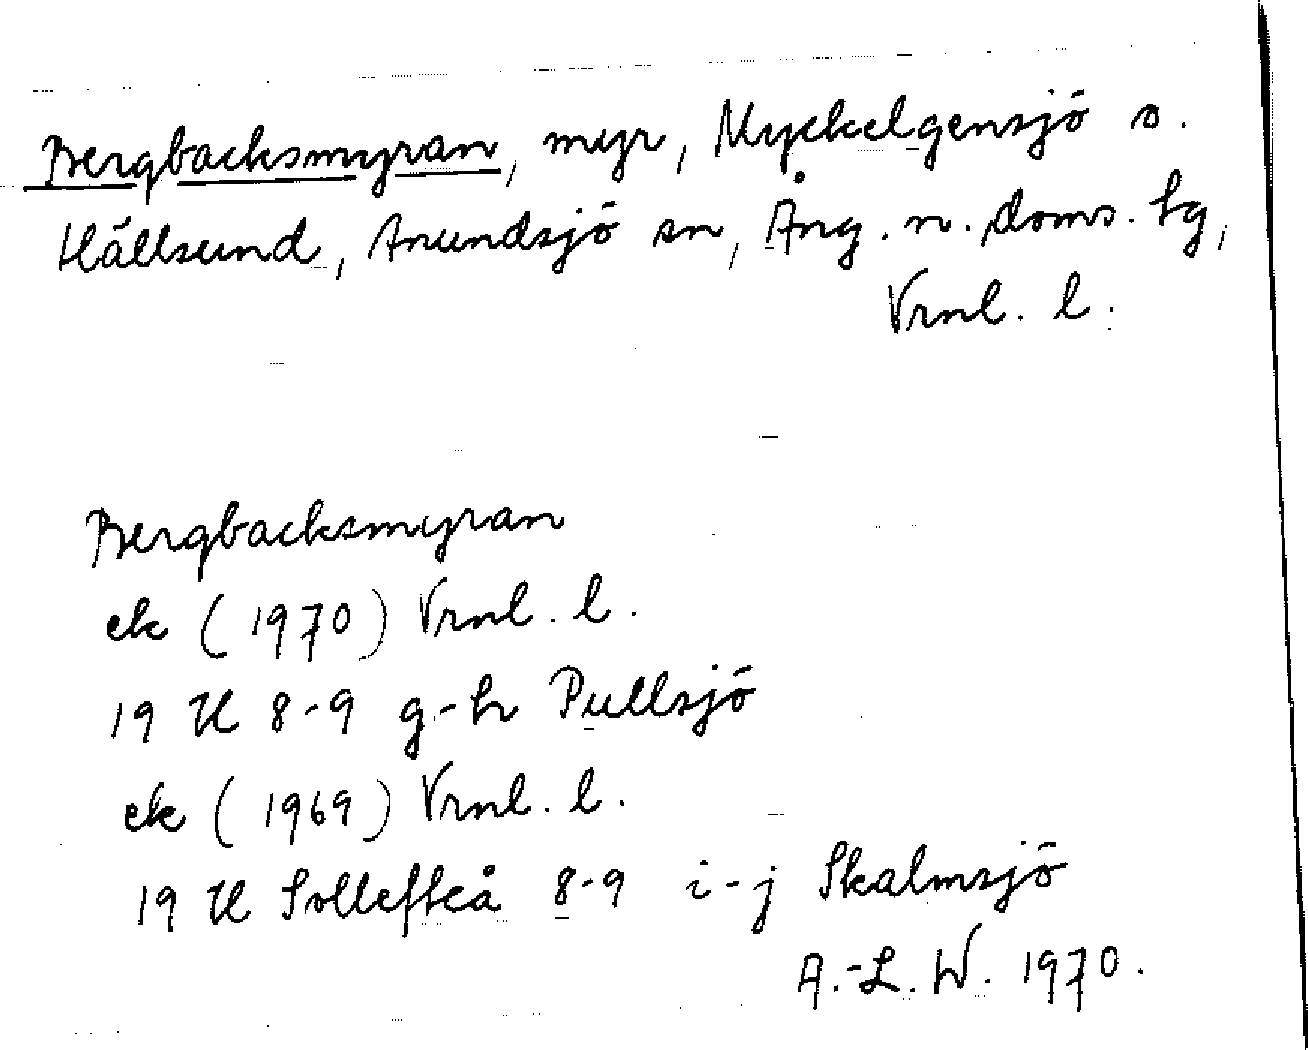 Bergbacksmyran, myr, Myckelgensjö o.
Hällsund, Anundsjö sn, Ång. n. doms. hg,
Vrnl. l.
Bergbacksmyran
ek (1970) Vrnl. l.
19 H 8-9 g-h Pullsjö
ek (1969) Vrnl. l.
19 H Sollefteå 8-9 i-j Skalmsjö
A.-L. W. 1970.